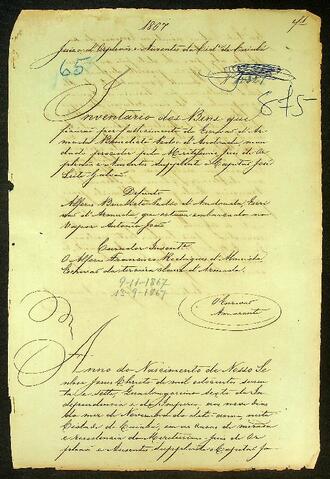 1867
Juizo d'Orphãos e Ausentes da Cid.e de Cuiabá
65
875
Inventario dos Bens que
ficarão por fallecimento do Escrivão d'Ar-
mada Benedicto de Andrade, man-
dado proceder pelo Meretissimo Juiz de Or-
phãos e Ausentes Supplente Capitão José
Leite Galvão
Defunto
Alferes Benedicto de Andrade, Escri-
vão d'Armada, que estava embarcado no
Vapor Antonio João
Curador Ausente
O Alferes Francisco Rodrigues d'Almeida
Escrivão da terceira classe d'Armada.
9-11-1867
13-9-1867
Escrivão
Amarante
Anno do Nascimento de Nosso Se-
nhor Jesus Christo de mil oitocentos sessen-
ta e sette, Quadragesimo sexto da In-
dependencia e do Imperio, aos nove dias
do mez de Novembro do dito anno, nesta
Cidade de Cuiabá, em as casas de morada
e residencia do Meretissimo Juiz de Or-
phãos e Ausentes Supplente Capitão Jo-